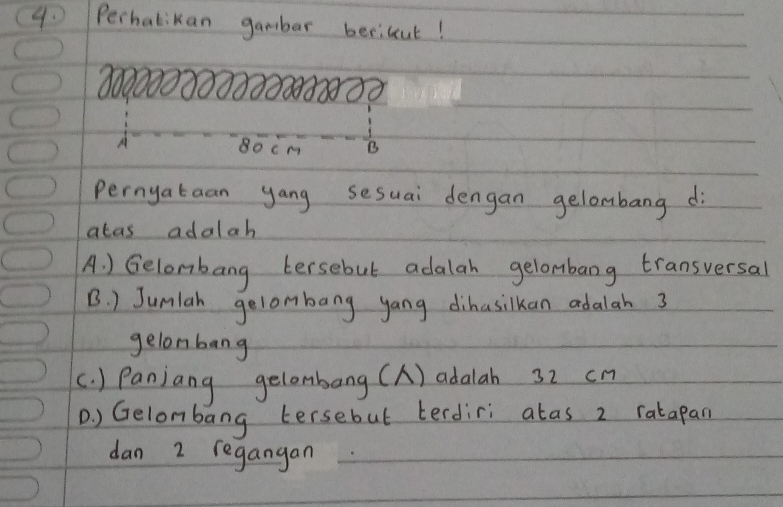 4. Perhatikan gambar berikut !
A 80 cm B
Pernyataan yang sesuai dengan gelombang di
atas adalah
A.) Gelombang tersebut adalah gelombang transversal
B.) Jumlah gelombang yang dihasilkan adalah 3
gelombang
C.) Panjang gelombang (λ) adalah 32 cm
D.) Gelombang tersebut terdiri atas 2 ratapan
dan 2 regangan .